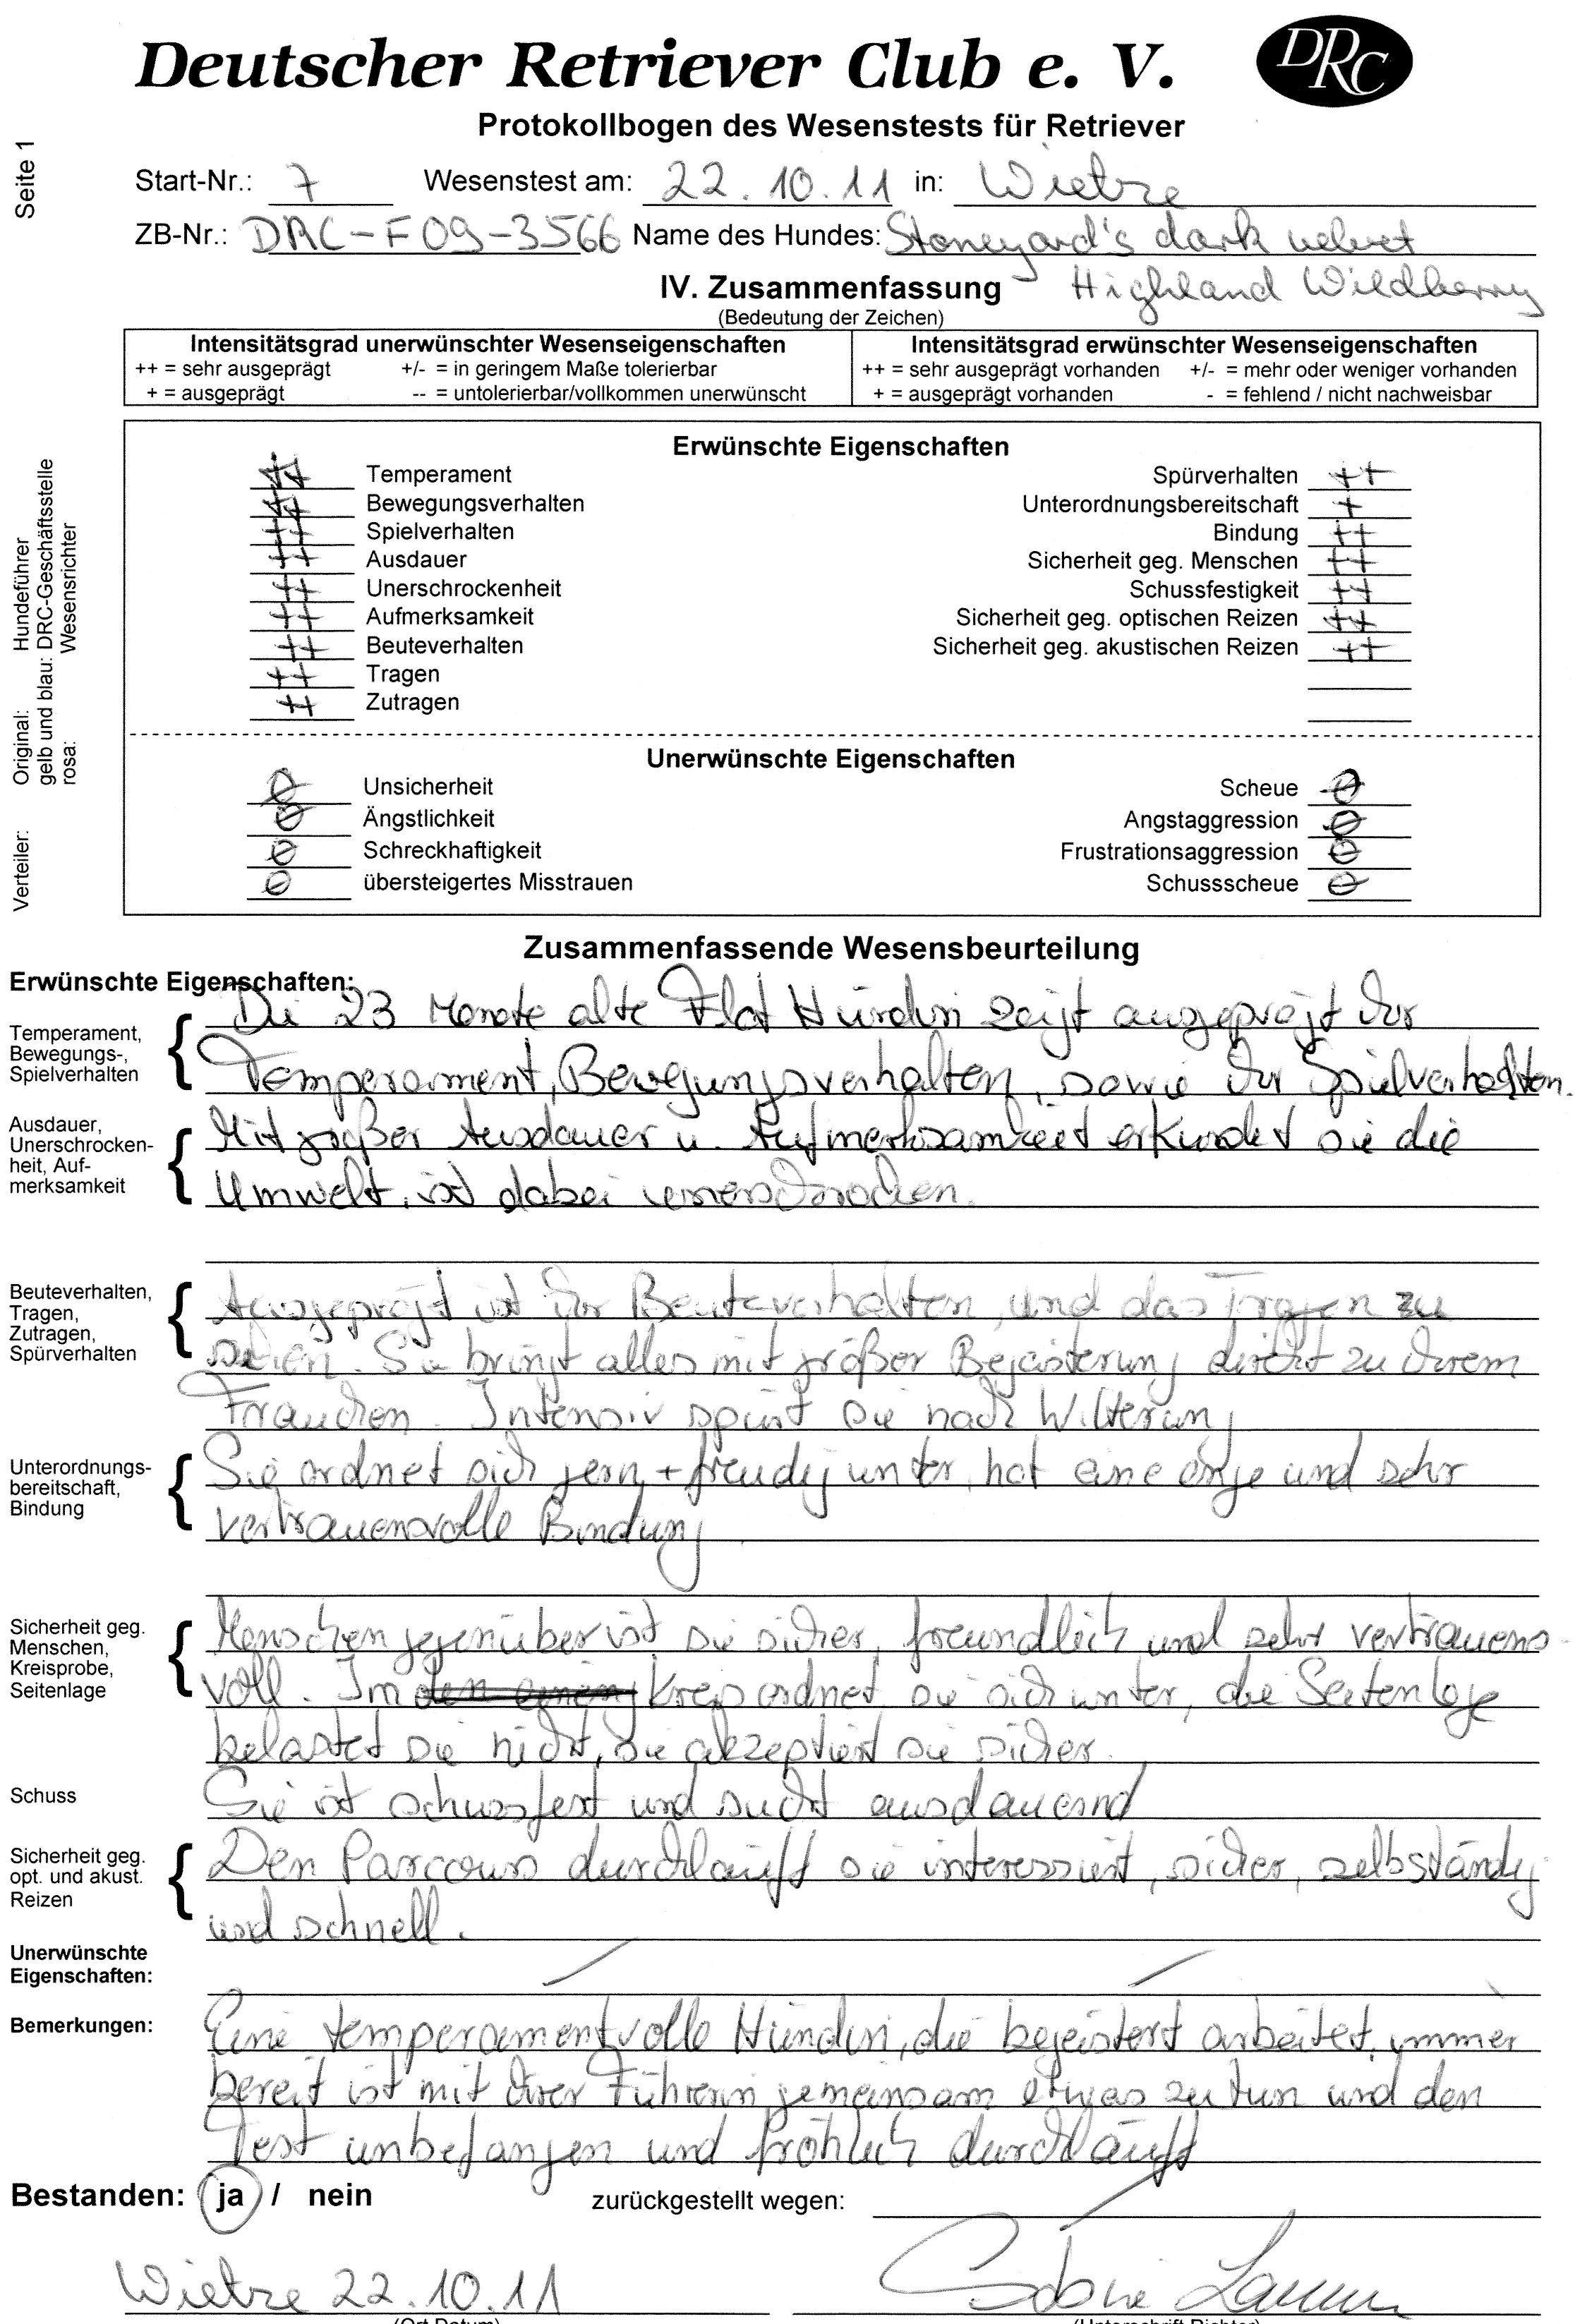 Deutscher Retriever Club e. V.
DRC
Protokollbogen des Wesenstests für Retriever
Seite 1
Start-Nr.: 7 Wesenstest am: 22.10.11 in: Wietze
ZB-Nr.: DRC-F09-3566 Name des Hundes: Stoneyard's dark velvet
Highland Wildberry
IV. Zusammenfassung
(Bedeutung der Zeichen)
Intensitätsgrad unerwünschter Wesenseigenschaften Intensitätsgrad erwünschter Wesenseigenschaften
++ = sehr ausgeprägt +/- = in geringem Maße tolerierbar ++ = sehr ausgeprägt vorhanden +/- = mehr oder weniger vorhanden
+ = ausgeprägt -- = untolerierbar/vollkommen unerwünscht + = ausgeprägt vorhanden - = fehlend / nicht nachweisbar
Erwünschte Eigenschaften
++ Temperament Spürverhalten ++
++ Bewegungsverhalten Unterordnungsbereitschaft +
++ Spielverhalten Bindung ++
++ Ausdauer Sicherheit geg. Menschen ++
++ Unerschrockenheit Schussfestigkeit ++
++ Aufmerksamkeit Sicherheit geg. optischen Reizen ++
++ Beuteverhalten Sicherheit geg. akustischen Reizen ++
++ Tragen
++ Zutragen
Unerwünschte Eigenschaften
Ø Unsicherheit Scheue Ø
Ø Ängstlichkeit Angstaggression Ø
Ø Schreckhaftigkeit Frustrationsaggression Ø
Ø übersteigertes Misstrauen Schussscheue Ø
Verteiler: Original: Hundeführer
gelb und blau: DRC-Geschäftsstelle
rosa: Wesensrichter
Zusammenfassende Wesensbeurteilung
Erwünschte Eigenschaften:
Temperament,
Bewegungs-,
Spielverhalten
Die 23 Monate alte Flat Hündin zeigt ausgeprägt ihr
Temperament, Bewegungsverhalten, sowie ihr Spielverhalten.
Ausdauer,
Unerschrocken-
heit, Auf-
merksamkeit
Mit großer Ausdauer u. Aufmerksamkeit erkundet sie die
Umwelt, ist dabei unerschrocken.
Beuteverhalten,
Tragen,
Zutragen,
Spürverhalten
Ausgeprägt ist ihr Beuteverhalten und das Tragen zu
sehen. Sie bringt alles mit großer Begeisterung direkt zu ihrem
Frauchen. Intensiv spürt sie nach Witterung
Unterordnungs-
bereitschaft,
Bindung
Sie ordnet sich gern + freudig unter, hat eine enge und sehr
vertrauensvolle Bindung
Sicherheit geg.
Menschen,
Kreisprobe,
Seitenlage
Menschen gegenüber ist sie sicher, freundlich und sehr vertrauens-
voll. Im Kreis ordnet sie sich unter, die Seitenlage
belastet sie nicht, sie akzeptiert sie sicher.
Schuss
Sie ist schussfest und sucht ausdauernd
Sicherheit geg.
opt. und akust.
Reizen
Den Parcours durchläuft sie interessiert, sicher, selbständig
und schnell.
Unerwünschte
Eigenschaften:
Bemerkungen:
Eine temperamentvolle Hündin, die begeistert arbeitet, immer
bereit ist mit ihrer Führerin gemeinsam etwas zu tun und den
Test unbefangen und fröhlich durchläuft
Bestanden: ja / nein zurückgestellt wegen:
Wietze 22.10.11
(Ort Datum) (Unterschrift Richter)